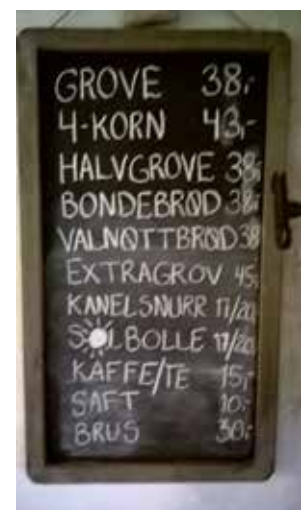 GROVE 38,-
4-KORN 43,-
HALVGROVE 38,-
BONDEBRØD 38,-
VALNØTTBRØD 38
EXTRAGROV 45,-
KANELSNURR 17/20,
SOLBOLLE 17/20,
KAFFE/TE 15,-
SAFT 10,-
BRUS 30,-